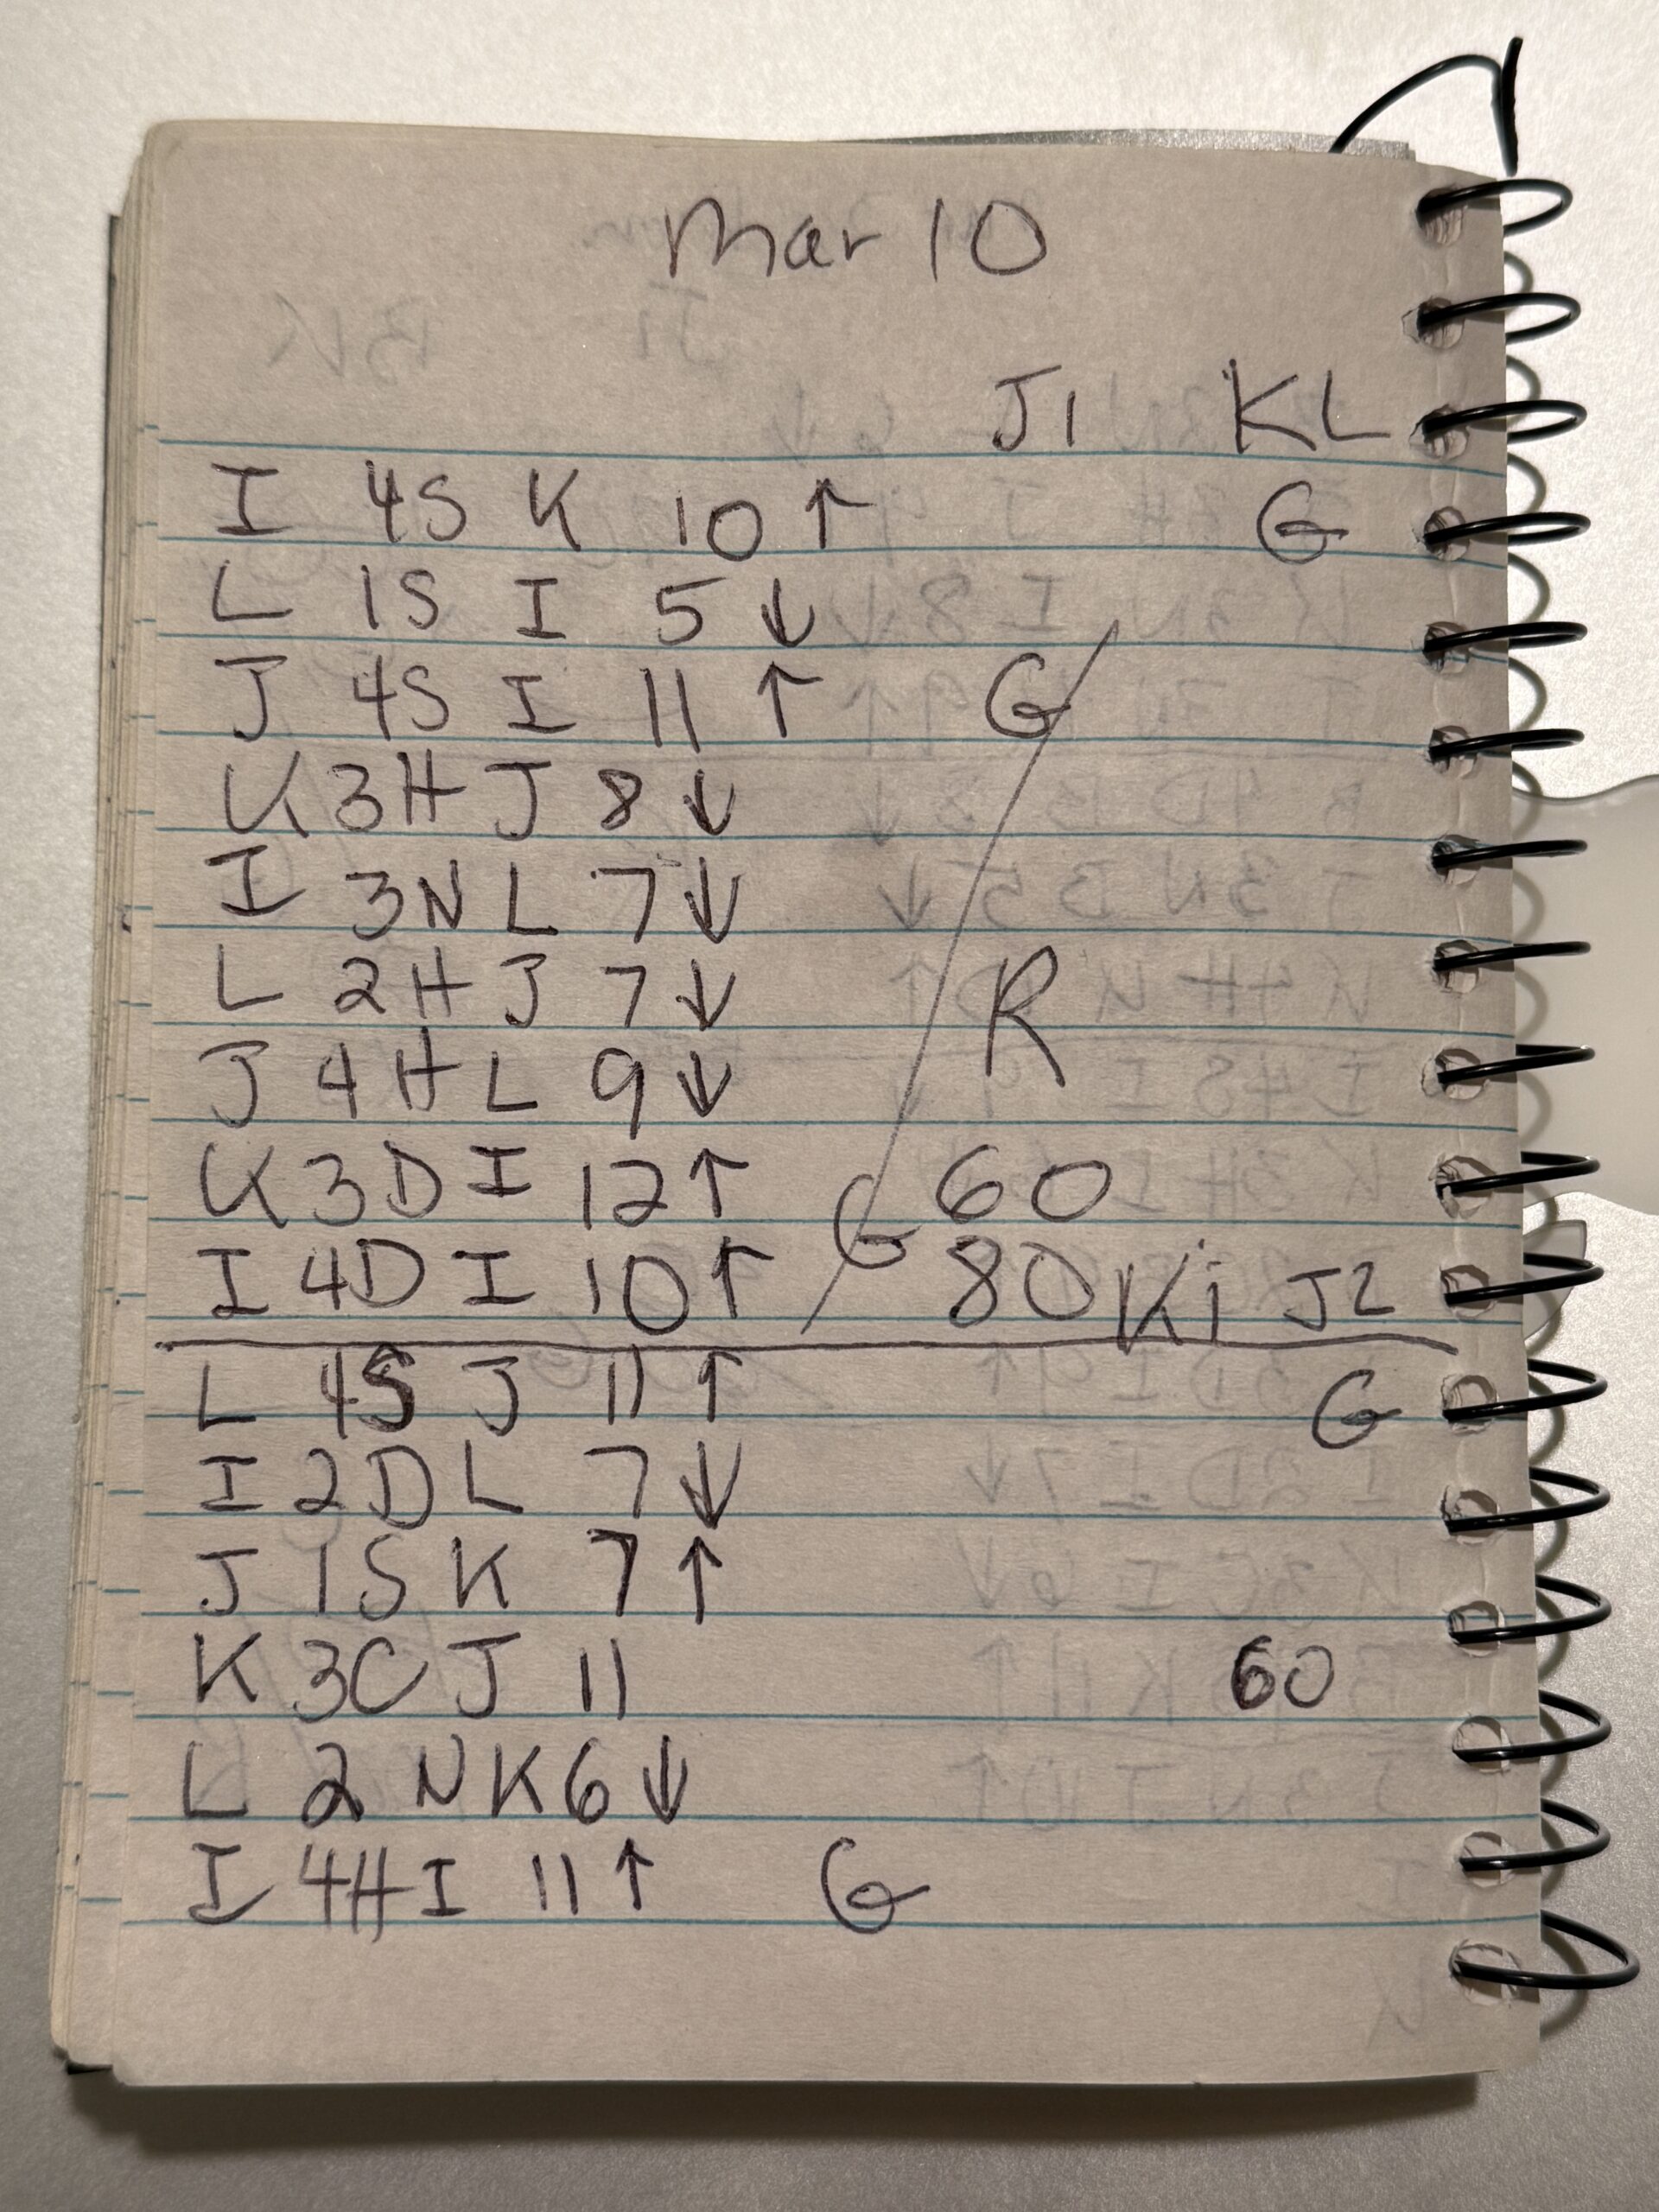 Mar 10
JI KL
I 4S K 10 ↑ G
L 1S I 5 ↓
J 4S I 11 ↑ G
K 3H J 8 ↓
I 3N L 7 ↓
L 2H J 7 ↓ R
J 4H L 9 ↓
K 3D I 12 ↑ 60
I 4D I 10 ↑ G 80 Ki J2
L 4S J 11 ↑ G
I 2D L 7 ↓
J 1S K 7 ↑
K 3C J 11 60
L 2 N K 6 ↓
I 4H I 11 ↑ G